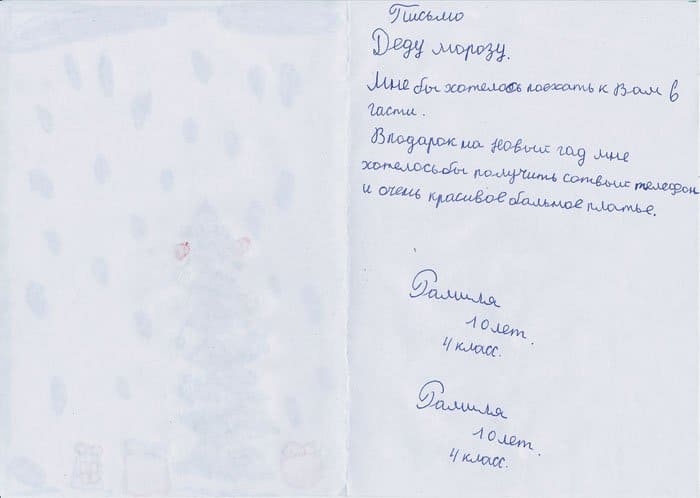 Письмо
Деду морозу.
Мне бы хотелось поехать к Вам в
гасти.
В подарок на новый гад мне
хотелось бы получить сотвый телефон
и очень красивое бальное платье.
Рамиля
10 лет.
4 класс.
Рамиля
10 лет.
4 класс.